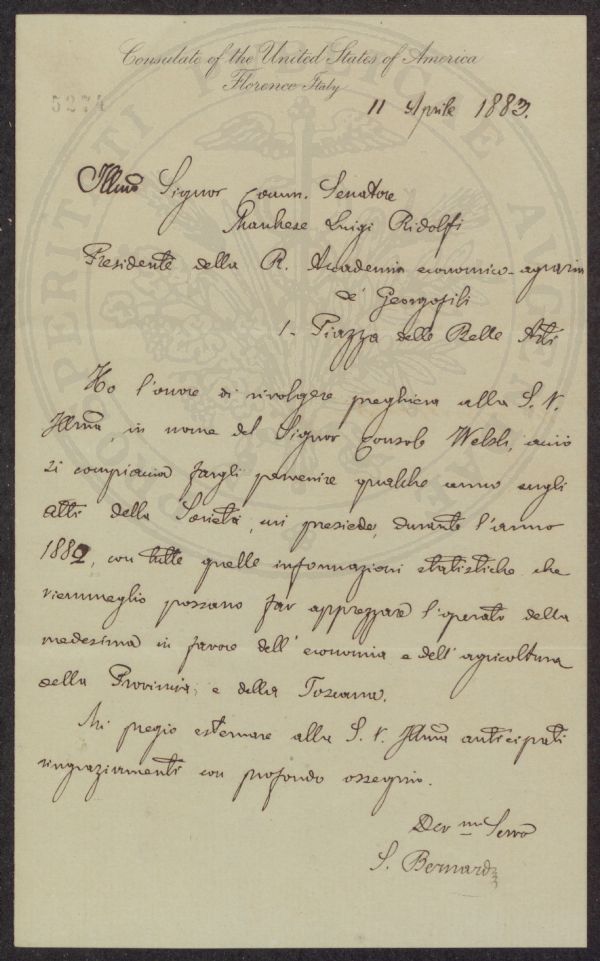 Consulate of the United States of America
Florence Italy
5274
11 Aprile 1883.
Illmo Signor Comm. Senatore
Marchese Luigi Ridolfi
Presidente della R. Accademia economico-agraria
de' Georgofili
1- Piazza delle Belle Arti
Ho l'onore di rivolgere preghiera alla S. V.
Illma, in nome del Signor Console Welsh, acciò
si compiaccia fargli pervenire qualche cenno sugli
atti della Società, cui presiede, durante l'anno
1882, con tutte quelle informazioni statistiche che
viemmeglio possano far apprezzare l'operato della
medesima in favore dell'economia e dell'agricoltura
della Provincia, e della Toscana.
Mi pregio esternare alla S. V. Illma anticipati
ringraziamenti con profondo ossequio.
Dev mo Servo
S. Bernardi